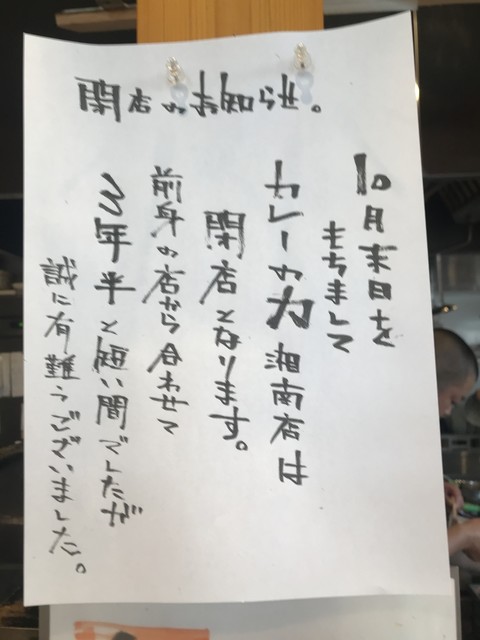 閉店のお知らせ。
10月末日を
もちまして
カレーの力 湘南店は
閉店となります。
前身の店から合わせて
3年半と短い間でしたが
誠に有難うございました。